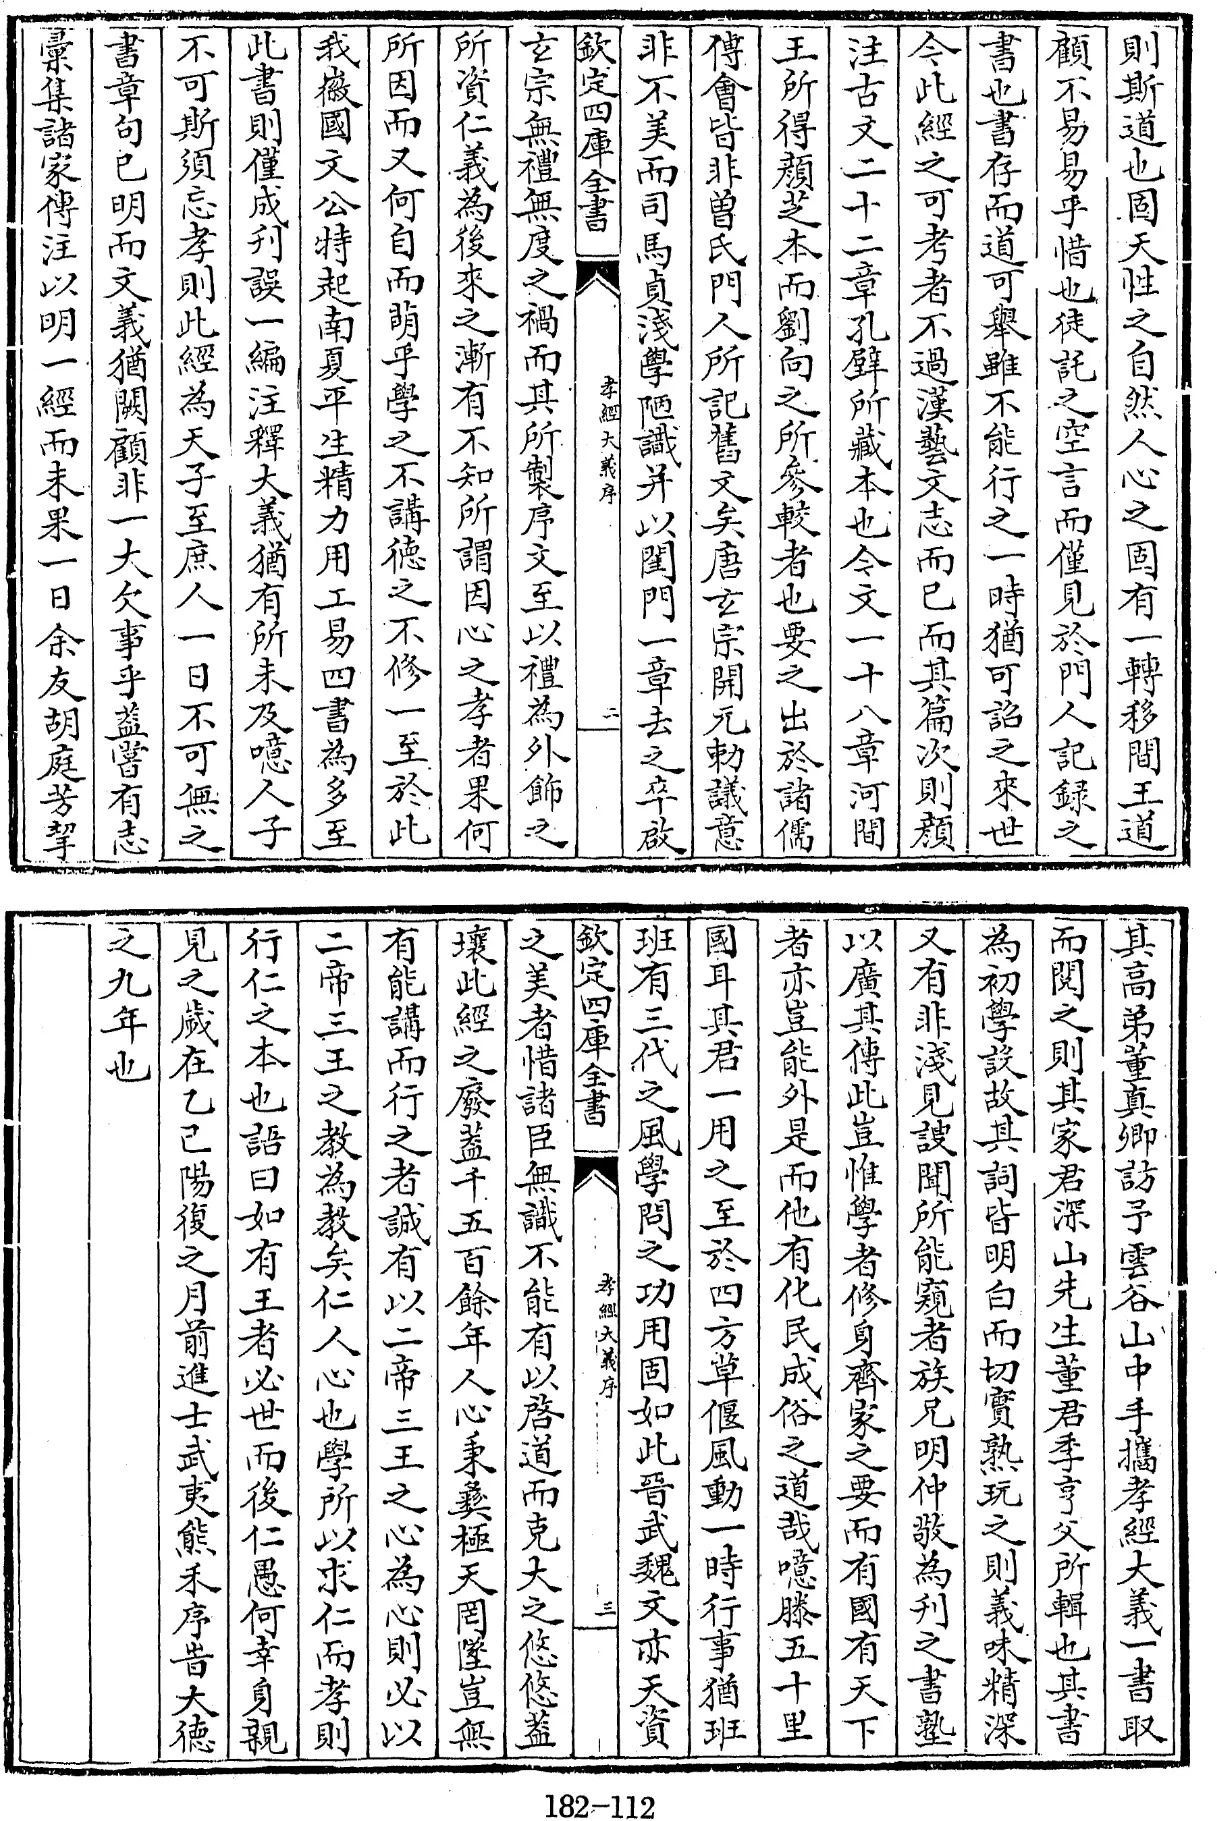 則斯道也固天性之自然人心之固有一轉移間王道
顧不易易乎惜也徒託之空言而僅見於門人記録之
書也書存而道可舉雖不能行之一時猶可詔之來世
今此經之可考者不過漢藝文志而已而其篇次則顏
注古文二十二章孔壁所藏本也今文一十八章河間
王所得顏芝本而劉向之所參較者也要之出於諸儒
傅會皆非曽氏門人所記舊文矣唐玄宗開元勅議意
非不美而司馬貞淺學陋識并以閨門一章去之卒啟
欽定四庫全書
孝經大義序
二
玄宗無禮無度之禍而其所製序文至以禮為外飾之
所資仁義為後來之漸有不知所謂因心之孝者果何
所因而又何自而萌乎學之不講徳之不修一至於此
我徽國文公特起南夏平生精力用工易四書為多至
此書則僅成刋誤一編注釋大義猶有所未及噫人子
不可斯須忘孝則此經為天子至庶人一日不可無之
書章句已明而文義猶闕顧非一大欠事乎葢嘗有志
彚集諸家傳注以明一經而未果一日余友胡庭芳挈
其高弟董真卿訪予雲谷山中手攜孝經大義一書取
而閱之則其家君深山先生董君季亨父所輯也其書
為初學設故其詞皆明白而切實熟玩之則義味精深
又有非淺見謏聞所能窺者族兄明仲敬為刋之書塾
以廣其傳此豈惟學者修身齊家之要而有國有天下
者亦豈能外是而他有化民成俗之道哉噫滕五十里
國耳其君一用之至於四方草偃風動一時行事猶班
班有三代之風學問之功用固如此晉武魏文亦天資
欽定四庫全書
孝經大義序
三
之美者惜諸臣無識不能有以啓道而克大之悠悠葢
壤此經之廢葢千五百餘年人心秉彜極天罔墜豈無
有能講而行之者誠有以二帝三王之心為心則必以
二帝三王之教為教矣仁人心也學所以求仁而孝則
行仁之本也語曰如有王者必世而後仁愚何幸身親
見之歲在乙巳陽復之月前進士武夷熊禾序旹大徳
之九年也
182-112